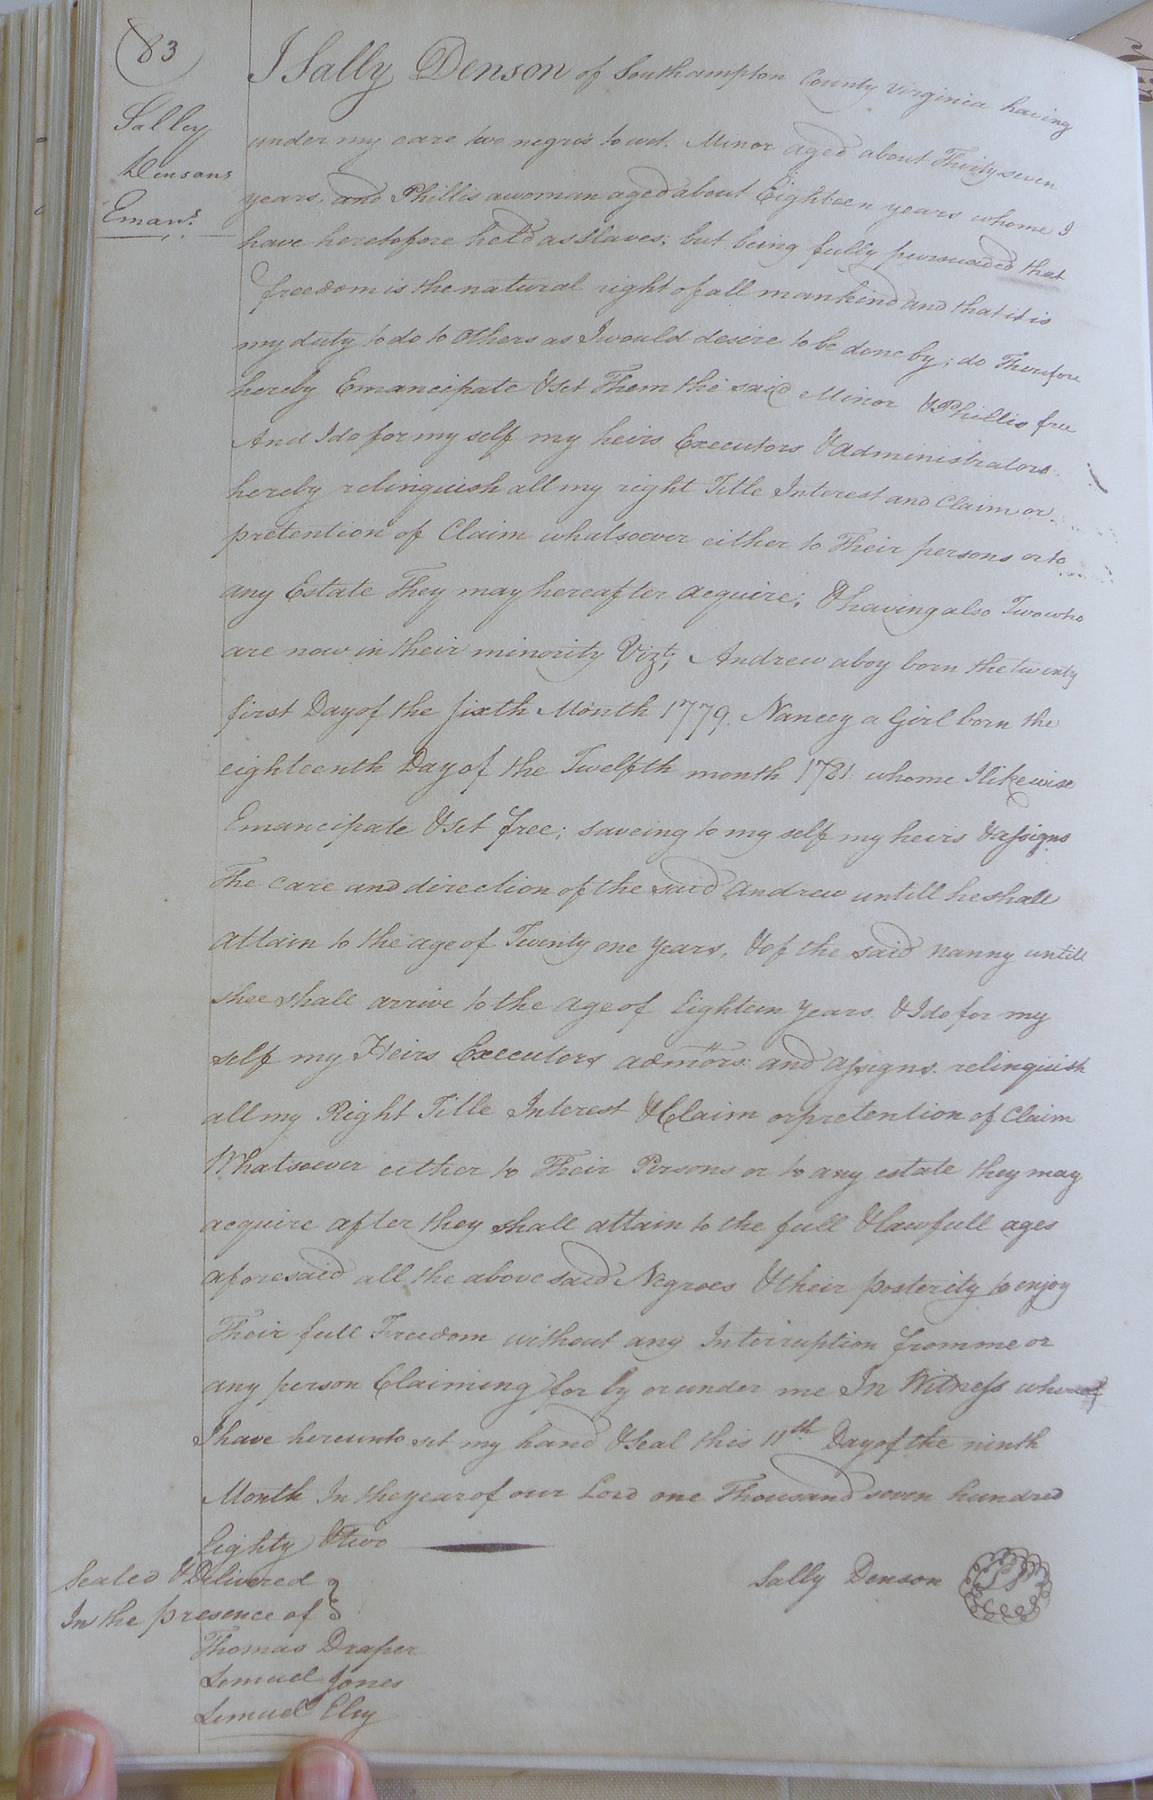 83
Salley
Densons
Eman:s
I Sally Denson of Southampton County Virginia having
under my care two negros towit. Minor aged about Thirty seven
years, and Phillis a woman aged about Eighteen years whome I
have heretofore held as slaves; but being fully perswaded that
freedom is the natural right of all mankind and that it is
my duty to do to others as I would desire to be done by; do Therefore
hereby Emancipate & set Them the said Minor & Phillis free
And I do for my self my heirs Executors & Administrators
hereby relinquish all my right Title Interest and Claim or
pretention of Claim whatsoever either to Their persons or to
any Estate They may hereafter acquire; & having also Two who
are now in their minority Vizt; Andrew a boy born the twenty
first Day of the sixth Month 1779. Nancey a Girl born the
eighteenth Day of the Twelfth month 1781 whome I likewise
Emancipate & set free; saveing to my self my heirs & assigns
The care and direction of the said Andrew untill he shall
attain to the age of Twenty one years, & of the said nanny untill
shee shall arrive to the age of Eighteen years. & I do for my
self my Heirs Executors admors: and assigns. relinquish
all my Right Title Interest & Claim or pretention of Claim
Whatsoever either to Their Persons or to any estate they may
acquire after they shall attain to the full & lawfull ages
aforesaid all the above said Negroes & their posterity to enjoy
Their full Freedom without any Interruption from me or
any person Claiming for by or under me In Witness whereof
I have hereunto set my hand & Seal this 11th Day of the ninth
Month In the year of our Lord one Thousand seven hundred
Eighty & two
Sealed & Delivered
In the presence of
Sally Denson
Thomas Draper
Lemuel Jones
Lemuel Eley